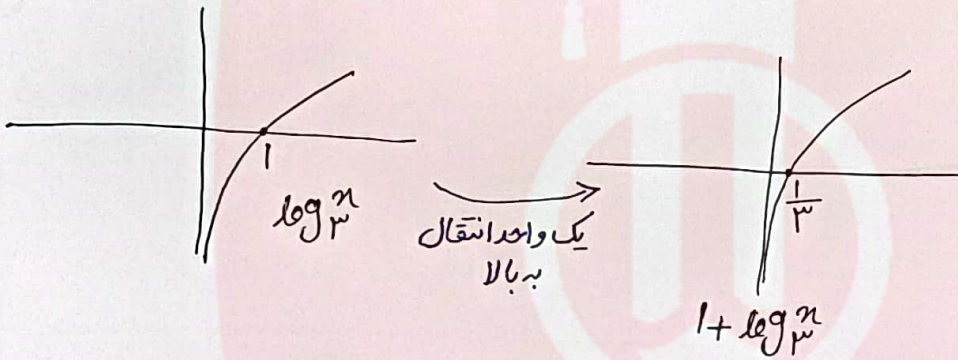 ۱
log₃ˣ
یک واحد انتقال
به بالا
۱/۳
۱ + log₃ˣ